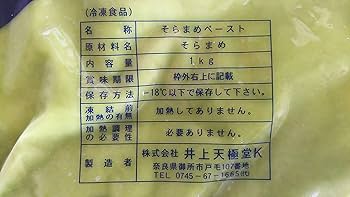 (冷凍食品)
名称 そらまめペースト
原材料名 そらまめ
内容量 1kg
賞味期限 枠外右上に記載
保存方法 -18℃以下で保存して下さい。
凍結前
加熱の有無 加熱してあります。
加熱調理
の必要性 必要ありません。
製造者 株式会社 井上天極堂K
奈良県御所市戸毛107番地
TEL 0745-67-1665㈹